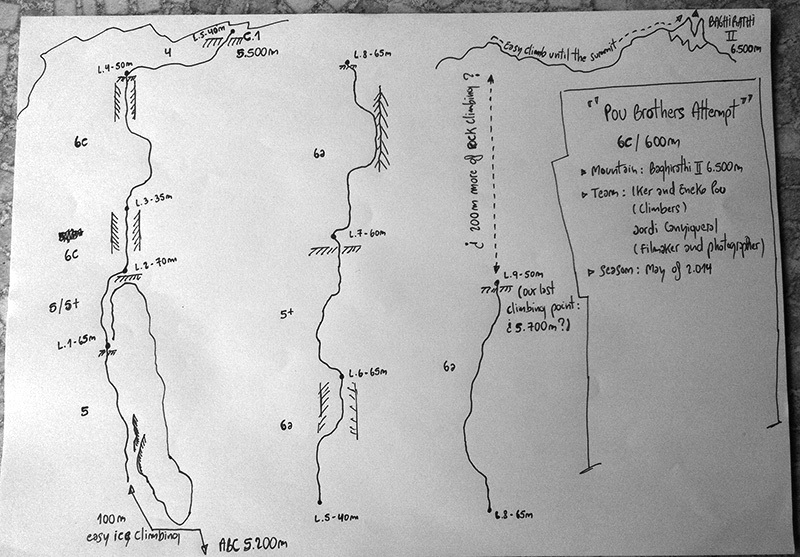 L.5-40m
C.1
5.500m
4
L.4-50m
6c
L.3-35m
6c
L.2-70m
5/5+
L.1-65m
5
100m
easy ice climbing
ABC 5.200m
L.8-65m
6a
L.7-60m
5+
L.6-65m
6a
L.5-40m
Easy climb until the summit
BAGHIRATHI
II
6.500m
¿ 200m more of ROCK climbing ?
L.9-50m
(our last
climbing point:
¿5.700m?)
6a
L.8-65m
"Pou Brothers Attempt"
6c / 600m
Mountain: Baghirathi II 6.500m
Team: Iker and Eneko Pou
(Climbers)
Jordi Canyigueral
(Filmaker and photographer)
Season: May of 2.014